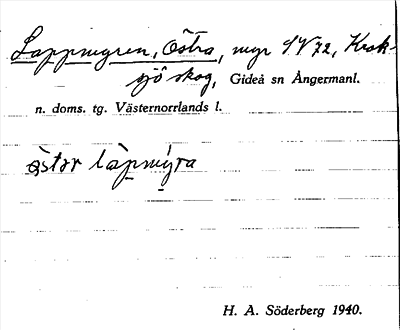 Lappmyren, Östra, myr SV72, Krok-
sjö skog, Gideå sn Ångermanl.
n. doms. tg. Västernorrlands l.
ə̀stər làpmýra
H. A. Söderberg 1940.